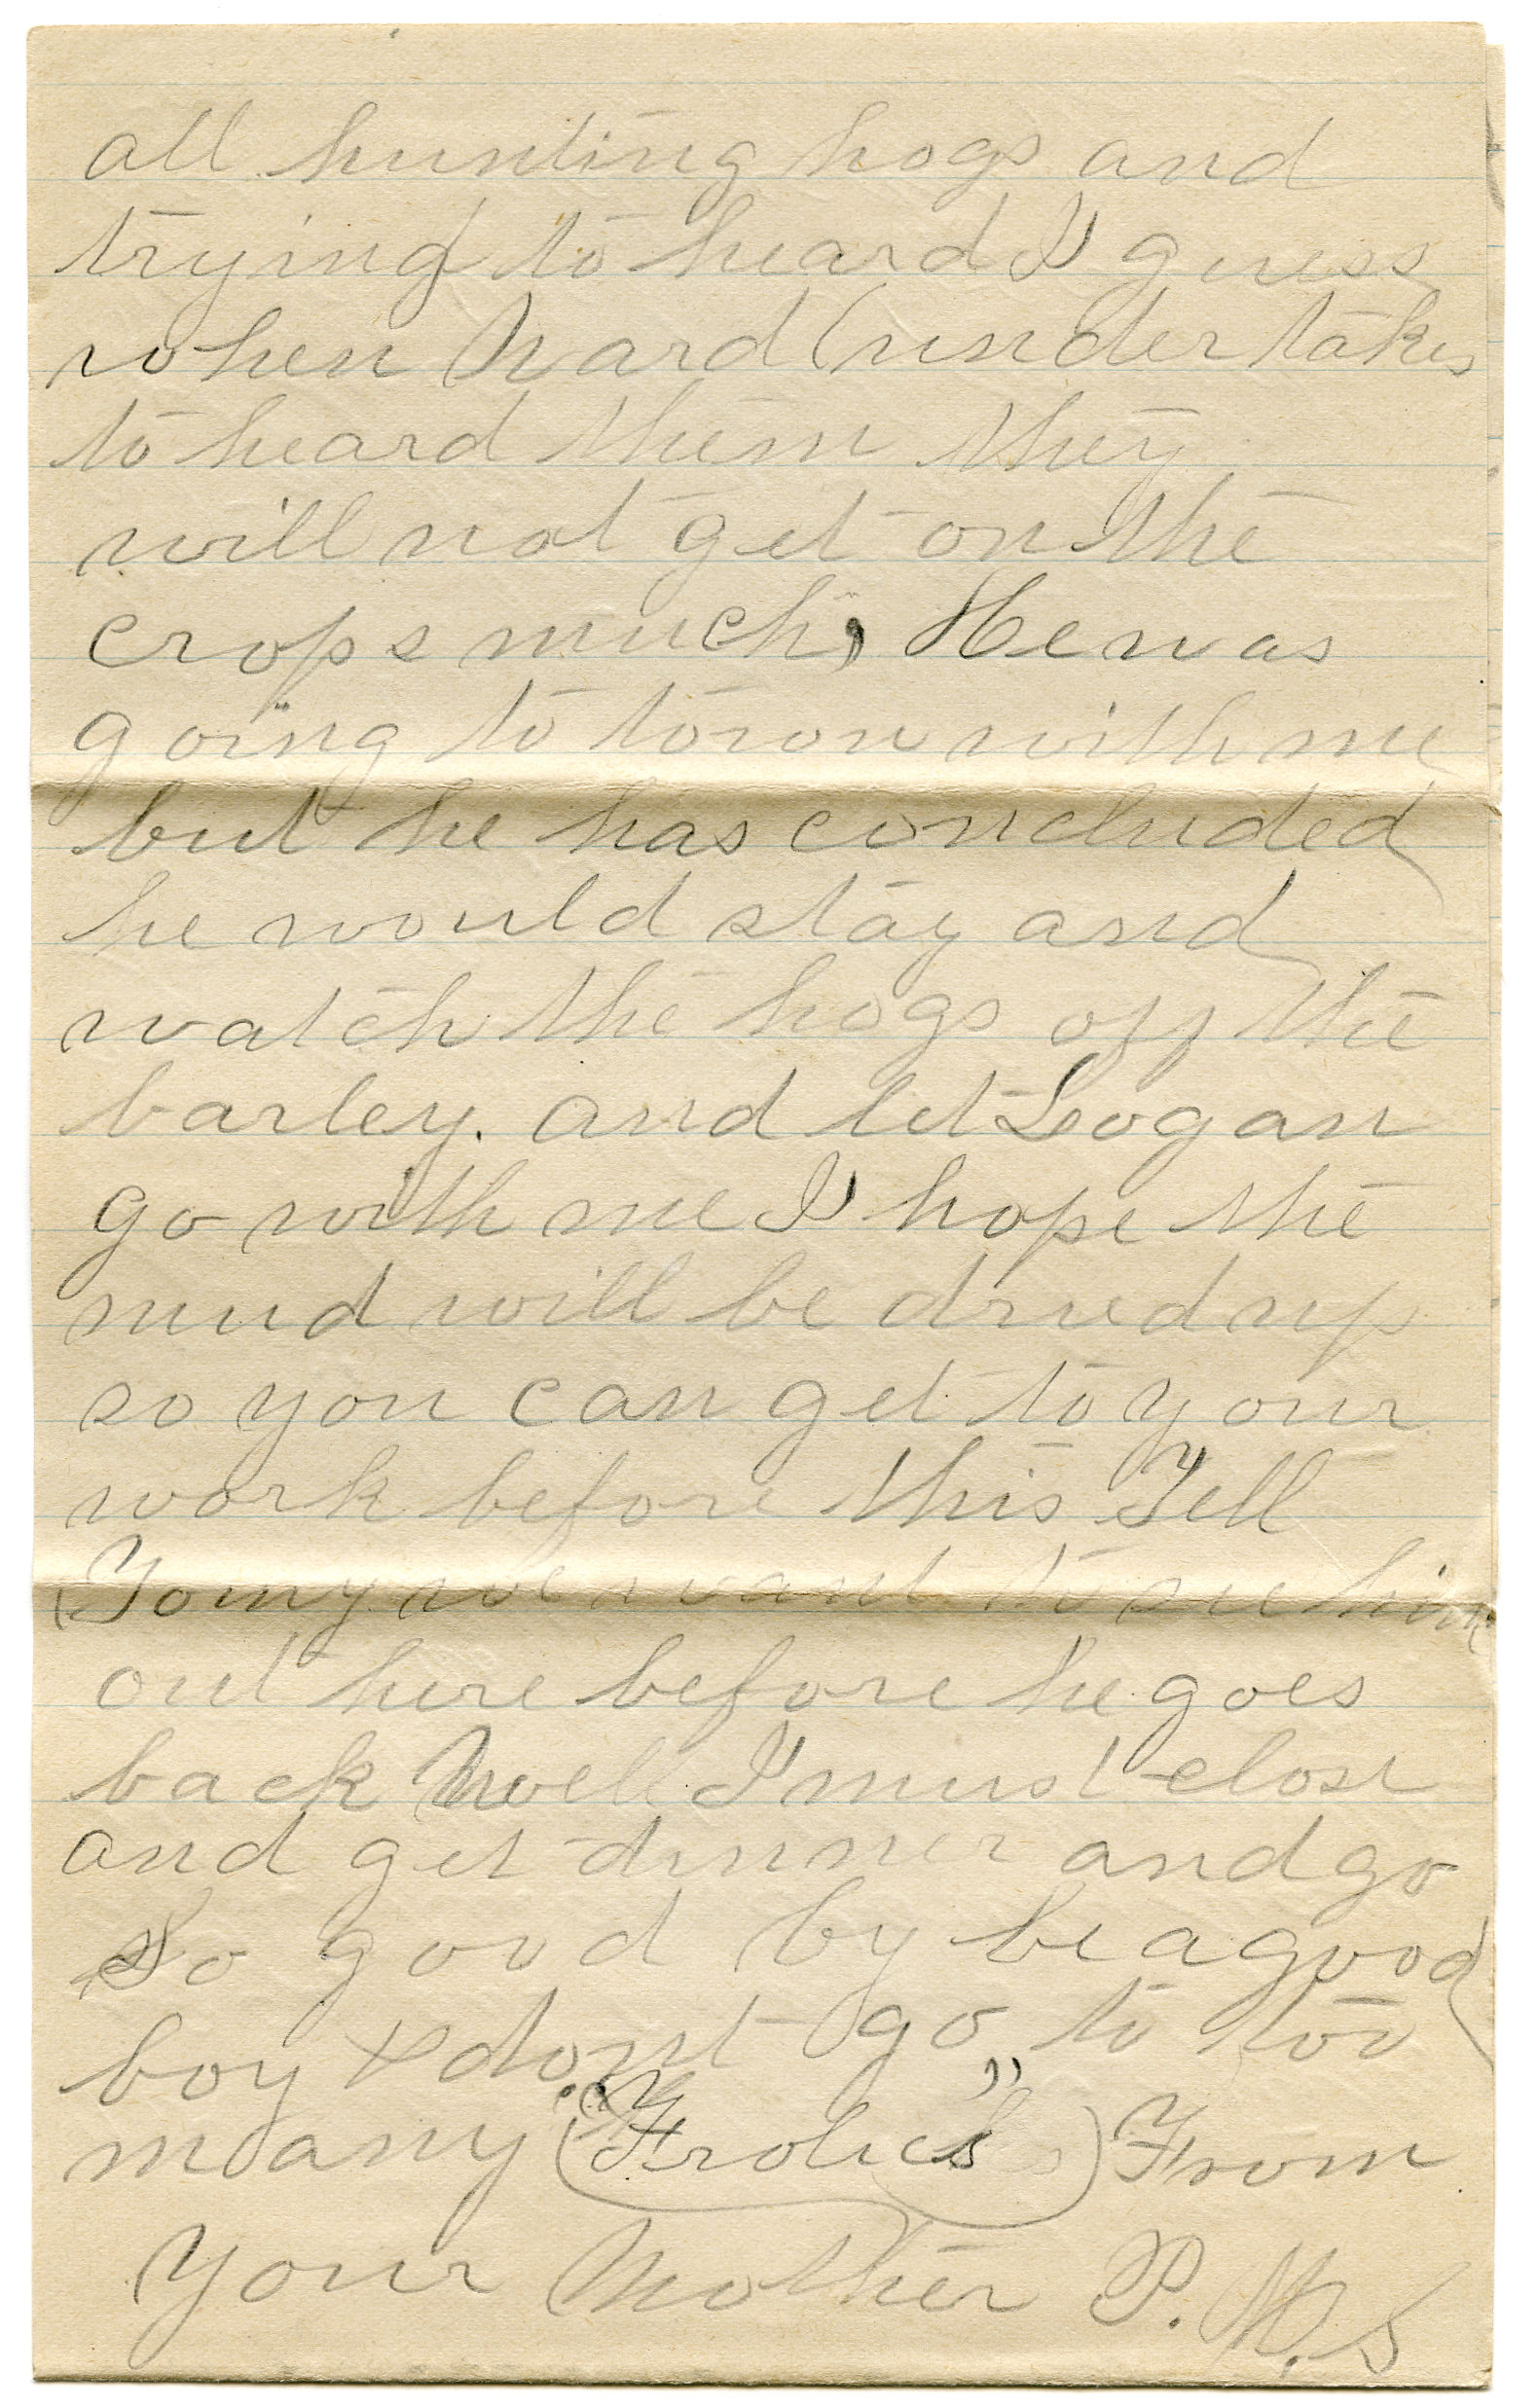 all hunting hogs and
trying to heard I guess
when Ward undertakes
to heard them they
will not get on the
crops much, He was
going to town with me
but he has concluded
he would stay and
watch the hogs off the
barley. and let Logan
go with me I hope the
mud will be dried up
so you can get to your
work before this Tell
Tomy we want to see him
out here before he goes
back Well I must close
and get dinner and go
So good by be a good
boy & dont go to too
many "Frolics" From
Your Mother P. M. S